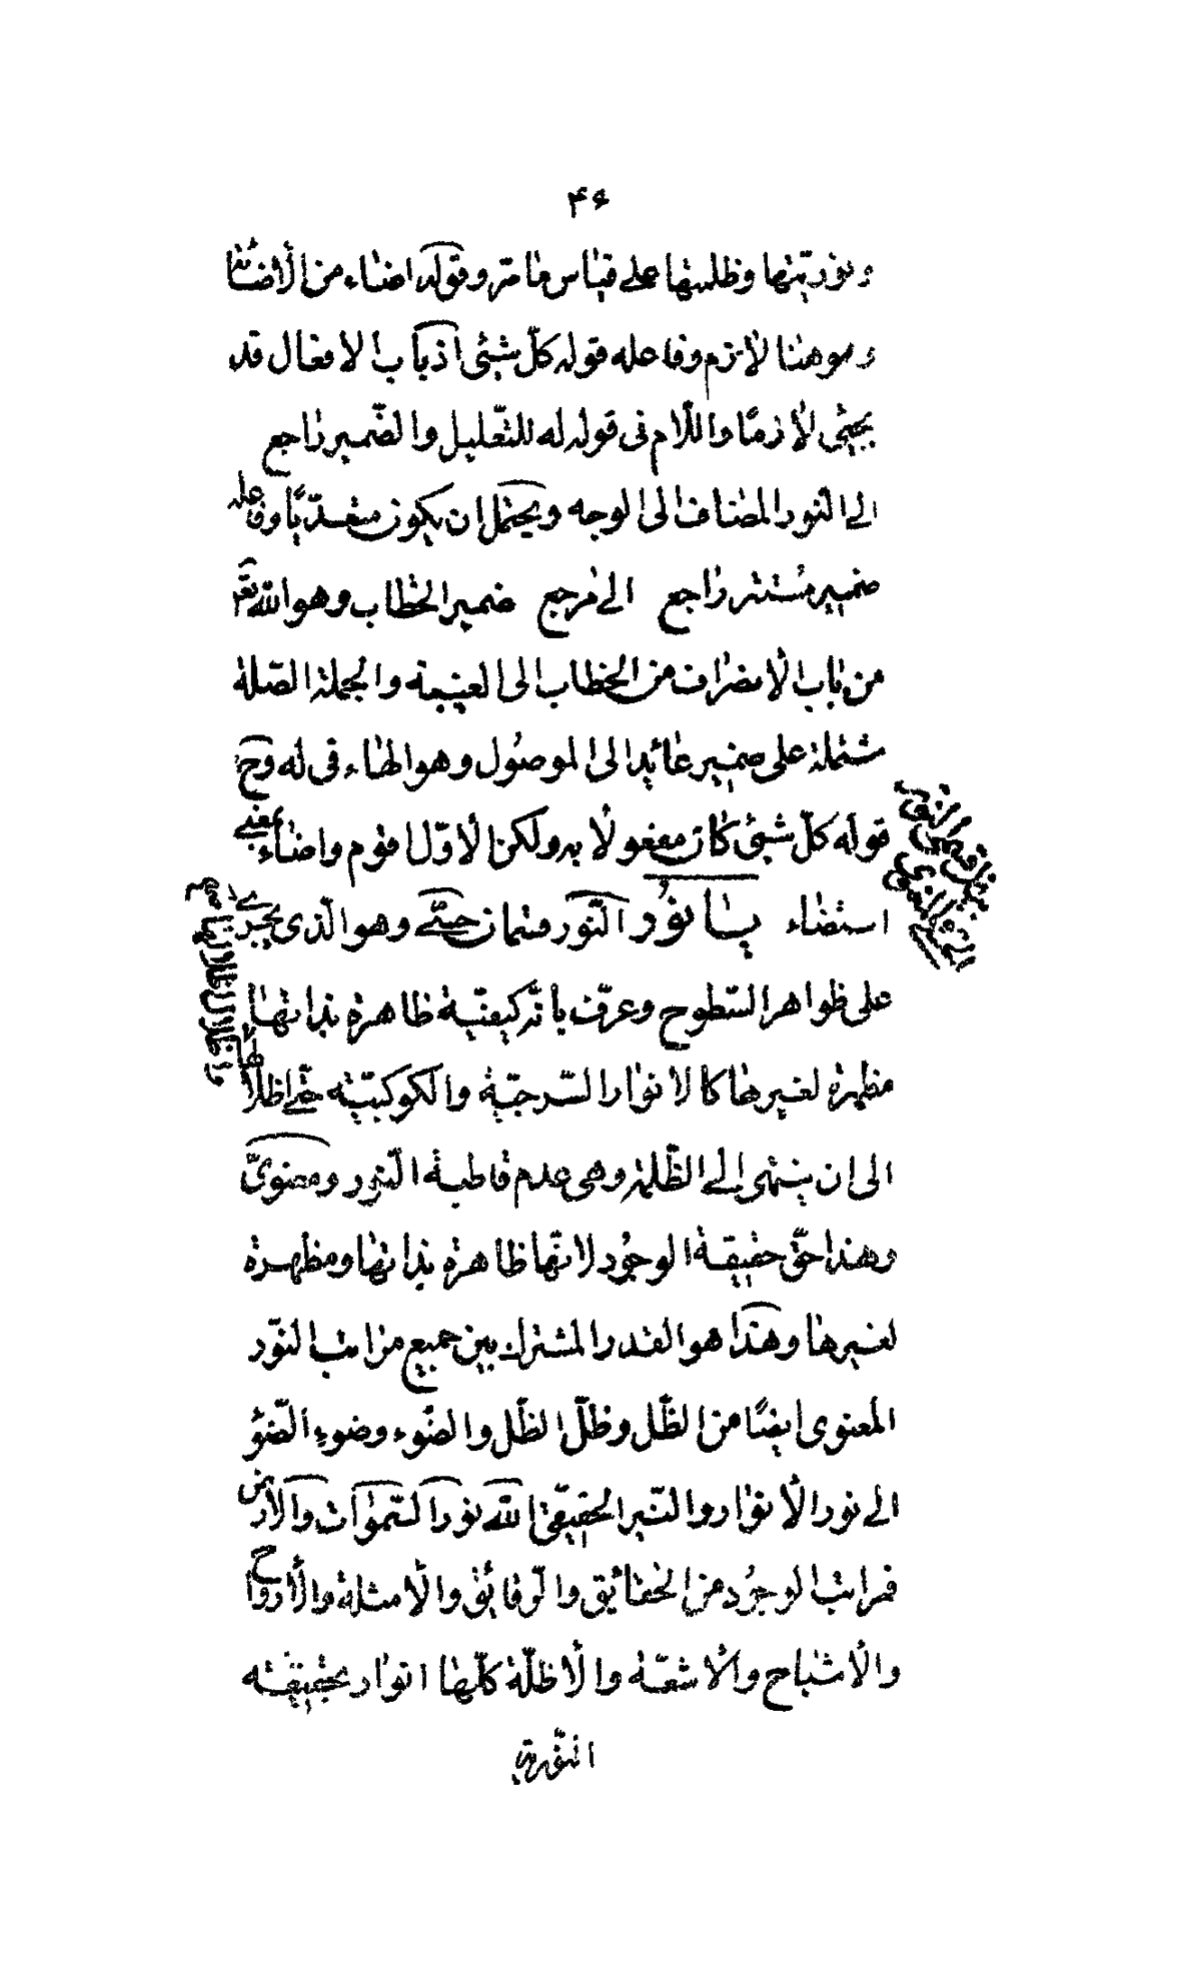 ۴۶
ونوریتها وظلیتها علی قیاس ما مر وقوله اضاء من الاضائة
وهو هنا لازم وفاعله قوله کلّ شیئی اذ باب الافعال قد
یجیئی لازمًا واللام فی قوله له للتّعلیل والضّمیر راجع
الی النّور المضاف الی الوجه ویحتمل ان یکون متعدّیًا وفاعله
ضمیر مستتر راجع الی مرجع ضمیر الخطاب وهو الله تعم
من باب الانصراف من الخطاب الی الغیبة والجملة الصّلة
مشتملة علی ضمیر عائد الی الموصول وهو الهاء فی له وح
قوله کلّ شیئی کان مفعولا به ولکن الاوّل اقوم واضاء بمعنی
استضاء یا نُور النّور قسمان حسّی وهو الذی یجری
علی ظواهر السّطوح وعرّف بانّه کیفیّة ظاهرة بذاتها
مظهرة لغیرها کالانوار السّرجیّة والکوکبیّة حتّی اظلالها
واظلال اظلالها
الی ان ینتهی الی الظّلمة وهی عدم قاطبة النّور ومعنویّ
وهذا حقّ حقیقة الوجود لانّها ظاهرة بذاتها ومظهرة
لغیرها وهذا هو القدر المشترک بین جمیع مراتب النّور
المعنوی ایضًا من الظّل وظلّ الظّل والضّوء وضوء الضّوء
الی نور الانوار والنّیر الحقیقی الله نور السّموات والارض
فمراتب الوجود من الحقائیق والرّقائیق والامثلة والارواح
والاشباح والاشعّة والاظلّة کلّها انوار بحقیقته
النّوریة